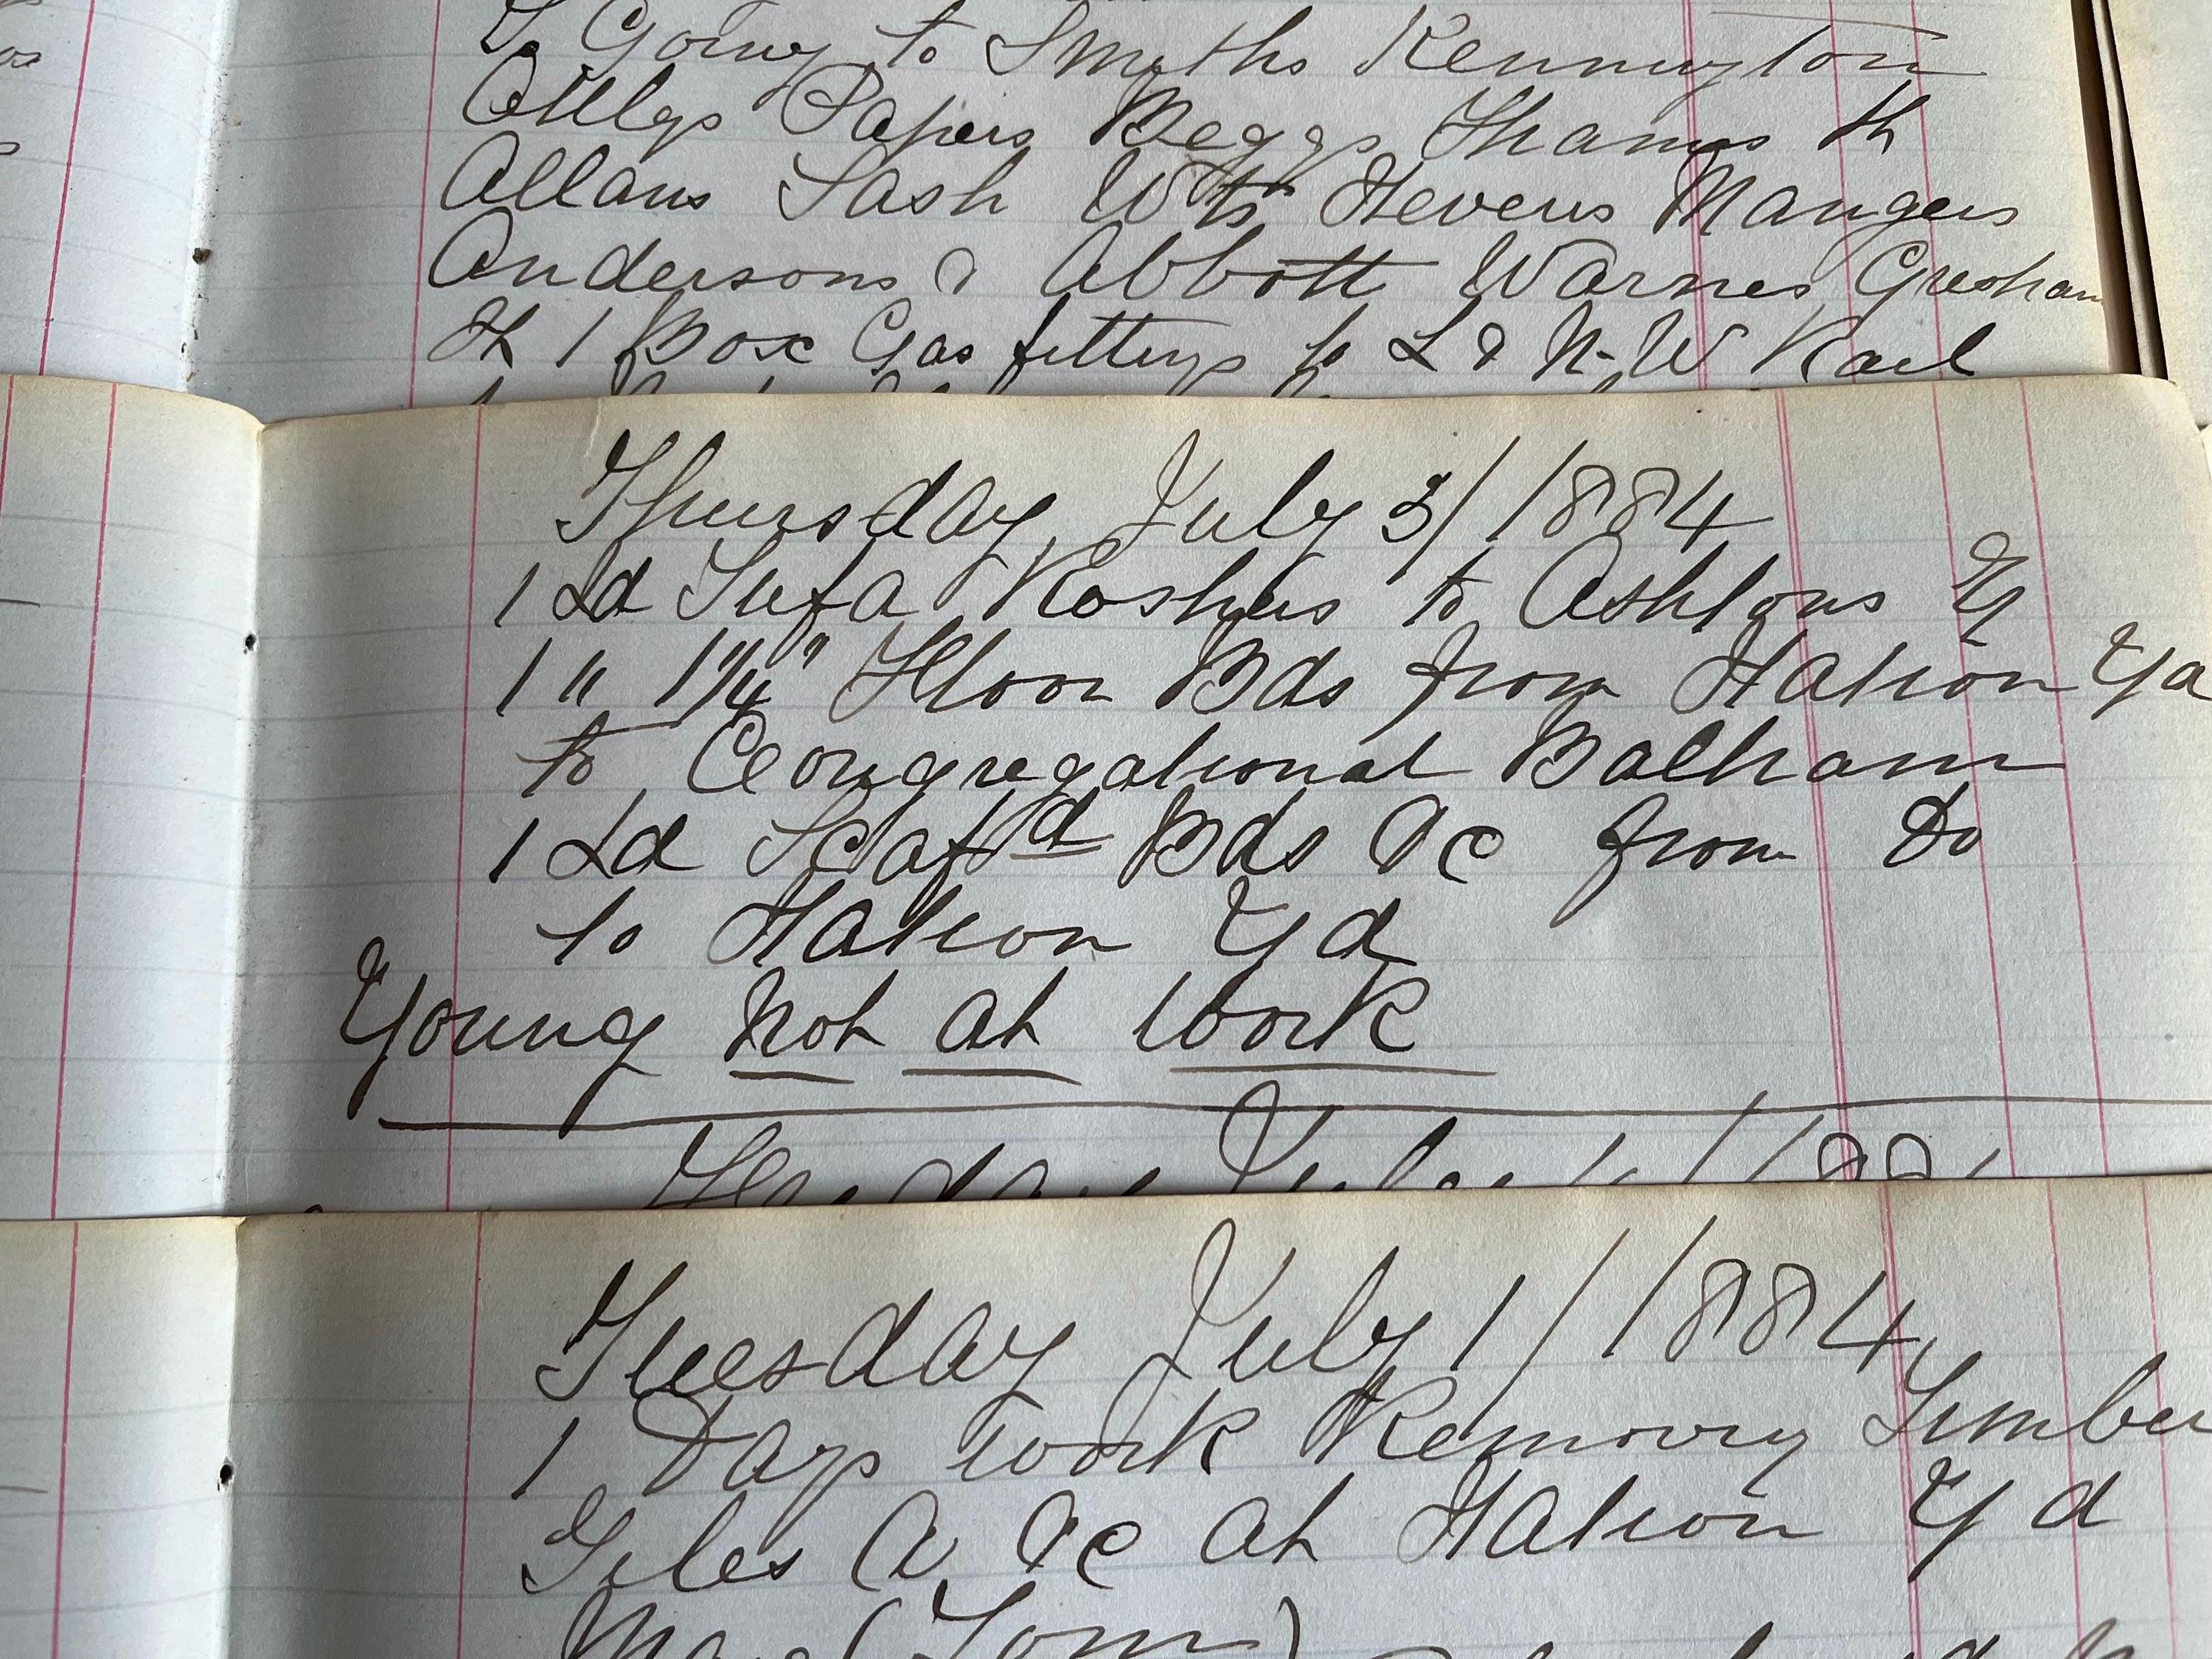 Going to Smyths Kennington
Papers Beggs Thames St
Allans Sash Wts Stevens Mangers
Andersons & Abbott Warnes Gresham
St 1 Box Gas fittings to L & N-W Rail
Thursday July 3/1884
1 Ld Tufa to Ashtons
1 " 1 1/4" Floor Bds from Station Ya
to Congregational Balham
1 Ld Scaffd Bds &c from Do
to Station Yd
Young not at Work
Tuesday July 1/1884
1 Days Work Removing Timber
&c at Station Yd
(Tom)